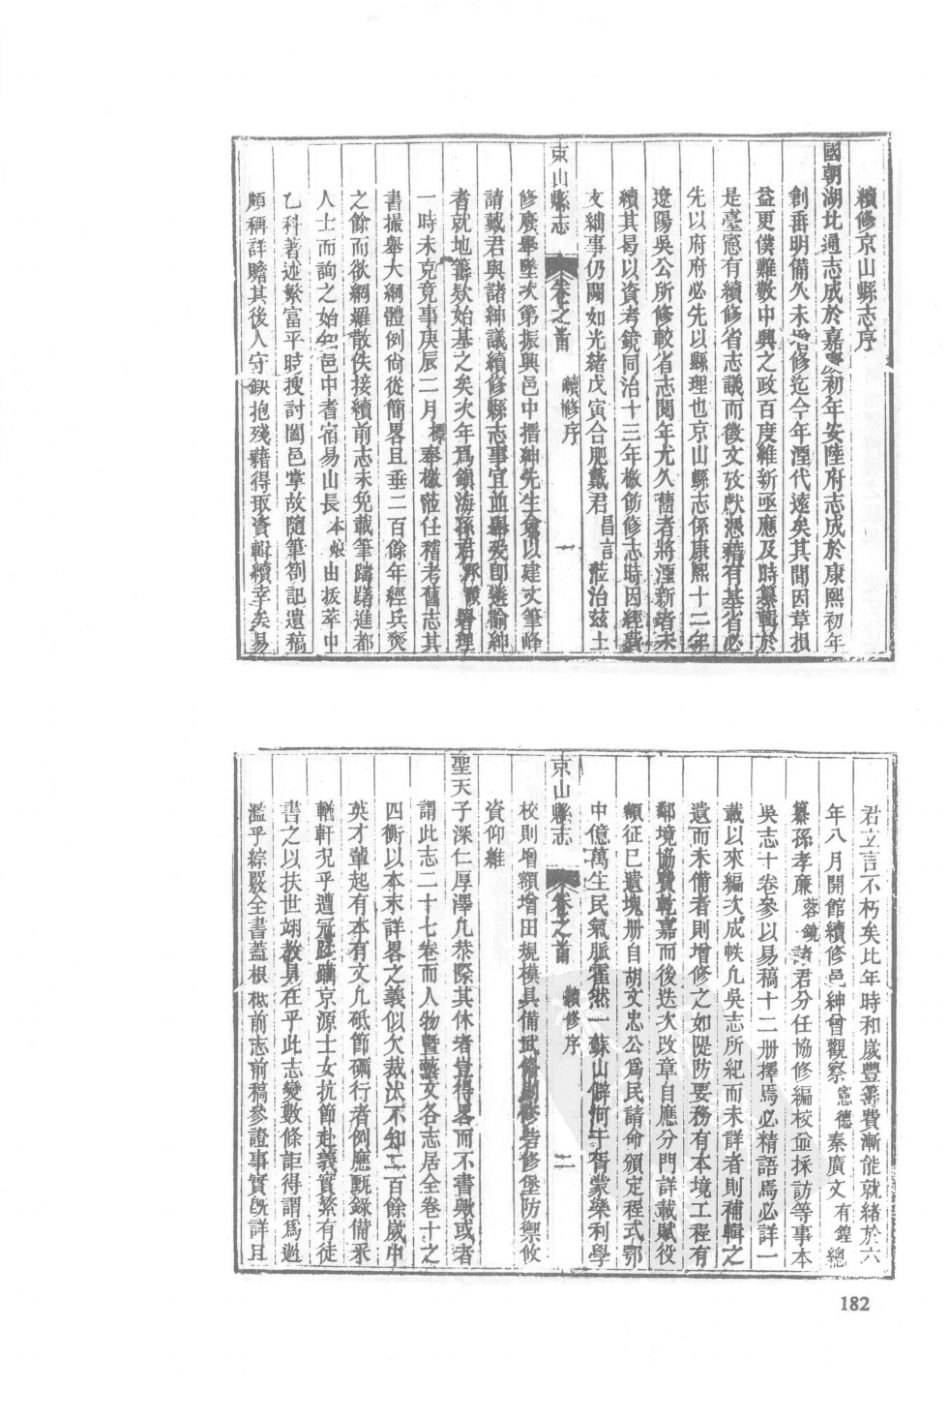 續修京山縣志序
國朝湖北通志成於嘉慶初年安陸府志成於康熙初年
創垂明備久未增修迄今年湮代遠矣其間因革損
益更僕難數中興之政百度維新亟應及時纂輯於
是臺憲有續修省志議而徵文攷獻憑藉有基省必
先以府府必先以縣理也京山縣志係康熙十二年
遼陽吳公所修較省志閱年尤久舊者將湮新者未
續其曷以資考鏡同治十三年檄飭修志時因經費
文絀事仍闕如光緒戊寅合肥戴君昌言蒞治茲土
京山縣志 卷之首 續修序 一
修廢舉墜次第振興邑中搢紳先生僉以建文筆峰
請戴君與諸紳議續修縣志事宜並舉爰卽邀諭紳
者就地籌欵始基之矣次年爲鎮海孫君 署理
一時未克竟事庚辰二月 奉檄蒞任稽考舊志其
書撮舉大綱體例尙從簡畧且垂二百餘年經兵燹
之餘而欲網羅散佚接續前志未免載筆躊躇進都
人士而詢之始知邑中耆宿易山長本烺由拔萃中
乙科著述繁富平時搜討闔邑掌故隨筆劄記遺稿
頗稱詳贍其後人守缺抱殘藉得取資輯續幸矣易
君立言不朽矣比年時和歲豐籌費漸能就緒於六
年八月開館續修邑紳曾觀察憲德秦廣文有鍠總
纂孫孝廉蓉鏡諸君分任協修編校並採訪等事本
吳志十卷參以易稿十二册擇焉必精語焉必詳一
載以來編次成帙凡吳志所紀而未詳者則補輯之
遺而未備者則增修之如隄防要務有本境工程有
鄰境協費乾嘉而後迭次改章自應分門詳載賦役
額征已遺塊册自胡文忠公爲民請命頒定程式鄂
中億萬生民氣脈霍然一蘇山僻何幸胥蒙樂利學
京山縣志 卷之首 續修序 二
校則增額增田規模具備武備則修砦修堡防禦攸
資仰維
聖天子深仁厚澤凡恭際其休者豈得畧而不書歟或者
謂此志二十七卷而人物曁藝文各志居全卷十之
四衡以本末詳畧之義似欠裁汰不知二百餘歲中
英才輩起有本有文凡砥節礪行者例應甄錄備釆
輶軒況乎遭寇蹂躪京源士女抗節赴義實繁有徒
書之以扶世翊教具在乎此志變數條詎得謂爲過
濫乎綜覈全書蓋根柢前志前稿參證事實旣詳且
182